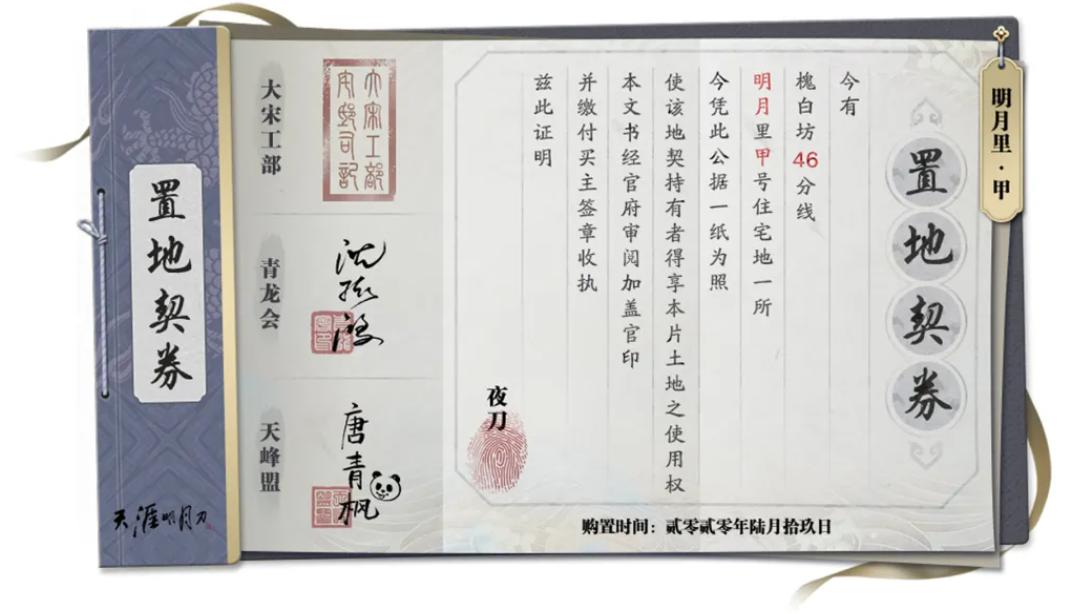 明月里·甲
置地契券
今有
槐白坊46分线
明月里甲号住宅地一所
今凭此公据一纸为照
使该地契持有者得享本片土地之使用权
本文书经官府审阅加盖官印
并缴付买主签章收执
兹此证明
夜刀
购置时间：贰零贰零年陆月拾玖日
大宋工部
青龙会
天峰盟
唐青枫
置地契券
天涯明月刀